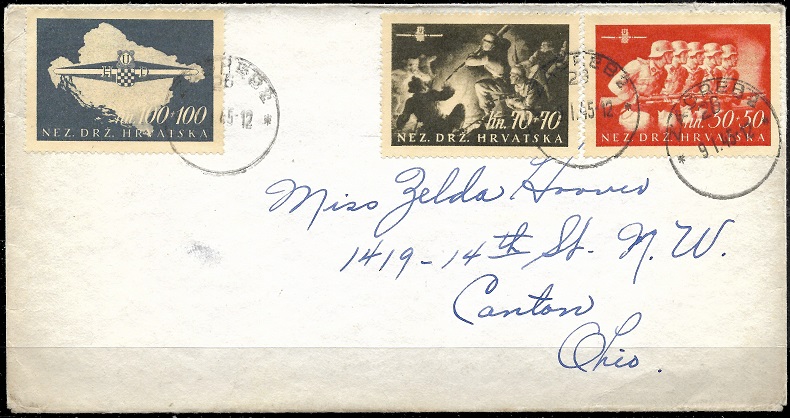 kn. 100+100
NEZ. DRŽ. HRVATSKA
kn. 70+70
NEZ. DRŽ. HRVATSKA
kn. 50+50
NEZ. DRŽ. HRVATSKA
ZAGREB 2
28
9 I.45-12
Miss Zelda Hoover
1419-14th St. N.W.
Canton
Ohio.